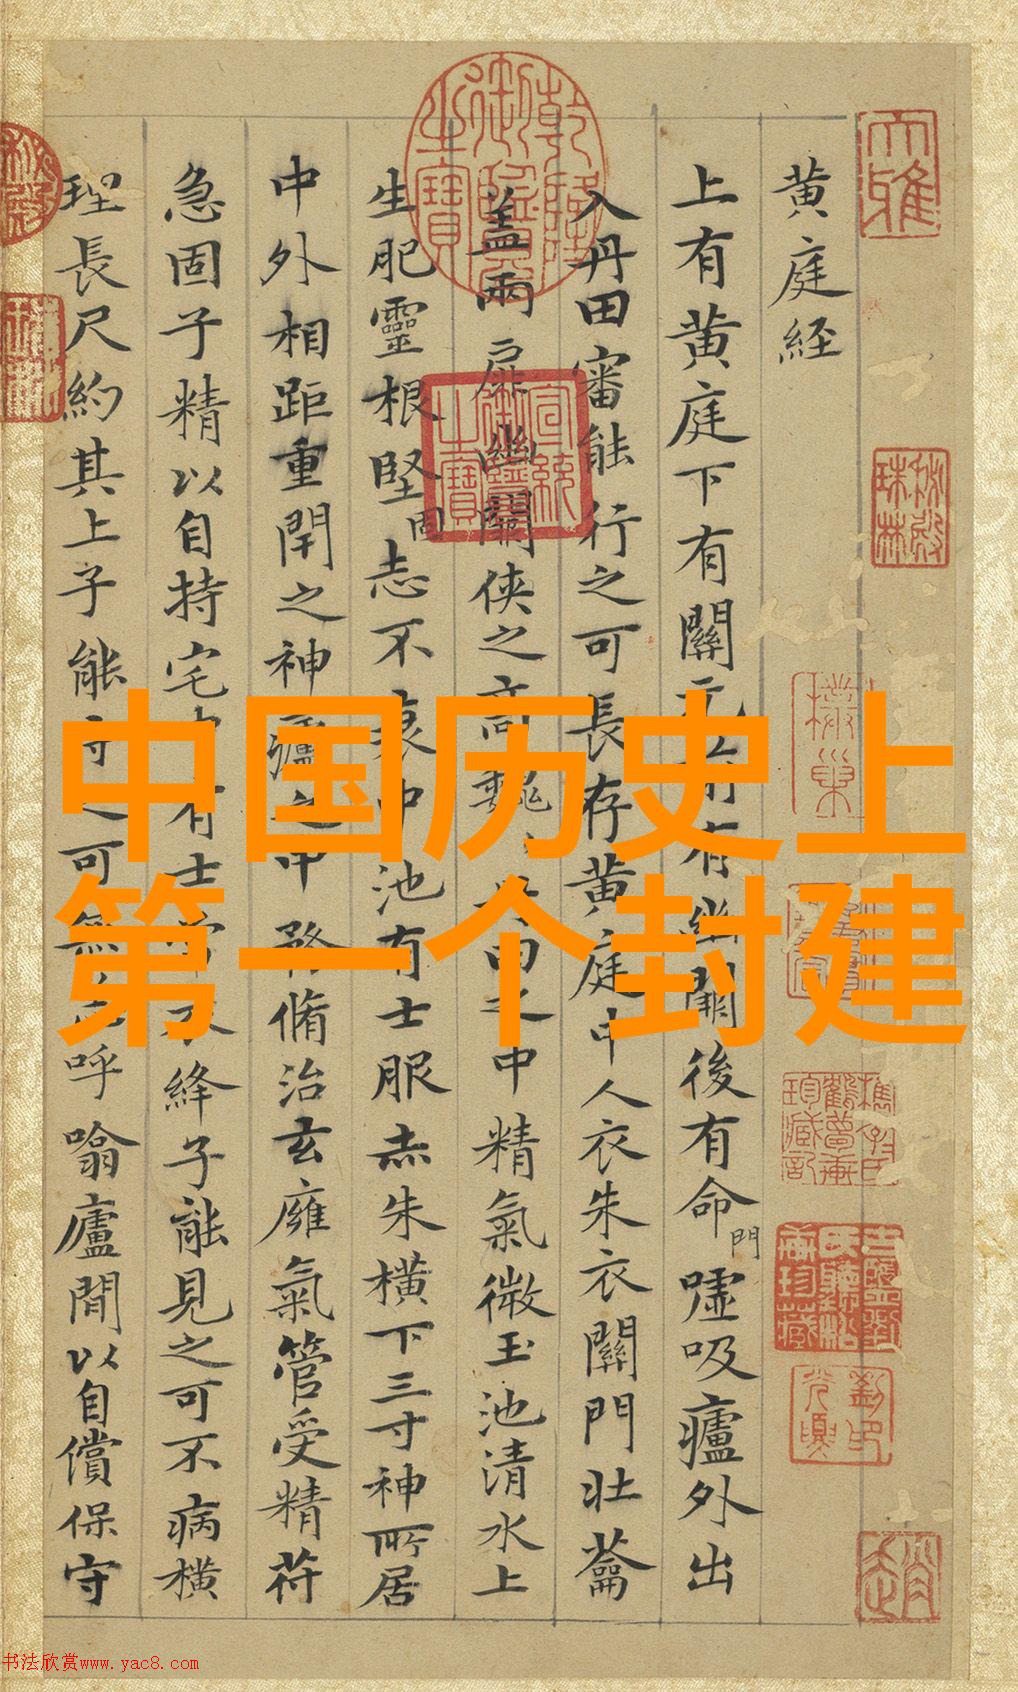 黄庭経
上有黄庭下有關元前有幽關後有命門嘘吸廬外出
入丹田審能行之可長存黄庭中人衣朱衣關門壯蘥
盖兩扉幽關俠之高魏魏丹田之中精氣微玉池清水上
生肥靈根堅固志不衰中池有士服赤朱横下三寸神所居
中外相距重閇之神廬之中務脩治玄廱氣管受精苻
急固子精以自持宅中有士常衣絳子能見之可不病横
理長尺約其上子能守之可無恙呼噏廬間以自償保守
乾隆御覽之寶
宣統御覽之寶
大雅
中国历史上
第一个封建
书法欣赏www.yac8.com